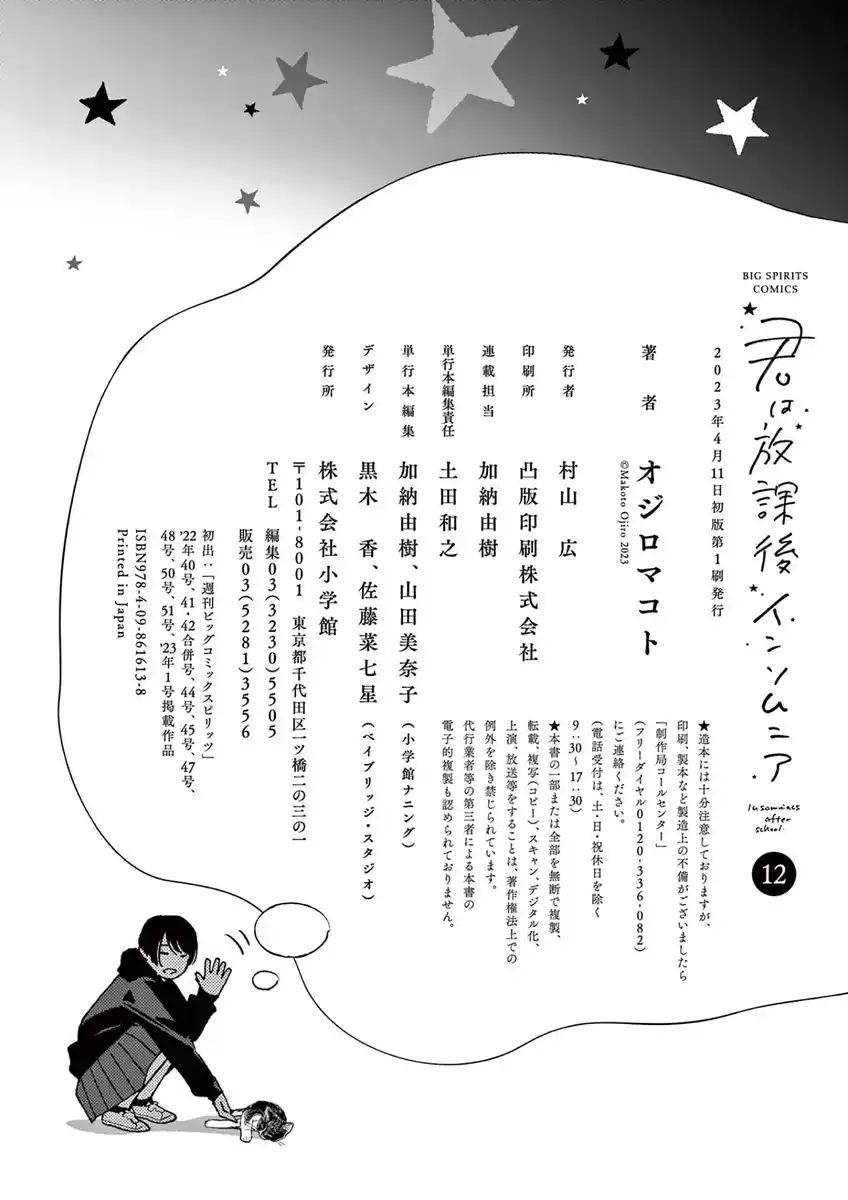 BIG SPIRITS
COMICS
君は放課後インソムニア
Insomniacs
after
school.
12
2023年4月11日初版第1刷発行
著者　オジロマコト
©Makoto Ojiro 2023
発行者　村山 広
印刷所　凸版印刷株式会社
連載担当　加納由樹
単行本編集責任　土田和之
単行本編集　加納由樹、山田美奈子（小学館ナニング）
デザイン　黒木 香、佐藤菜七星（ベイブリッジ・スタジオ）
発行所　株式会社小学館
〒101-8001　東京都千代田区一ツ橋二の三の一
TEL　編集03(3230)5505
販売03(5281)3556
初出：「週刊ビッグコミックスピリッツ」
'22年40号、41・42合併号、44号、45号、47号、
48号、50号、51号、'23年1号掲載作品
ISBN978-4-09-861613-8
Printed in Japan
★造本には十分注意しておりますが、
印刷、製本など製造上の不備がございましたら
「制作局コールセンター」
(フリーダイヤル0120-336-082)
にご連絡ください。
(電話受付は、土・日・祝休日を除く
9:30～17:30)
★本書の一部または全部を無断で複製、
転載、複写(コピー)、スキャン、デジタル化、
上演、放送等をすることは、著作権法上での
例外を除き禁じられています。
代行業者等の第三者による本書の
電子的複製も認められておりません。